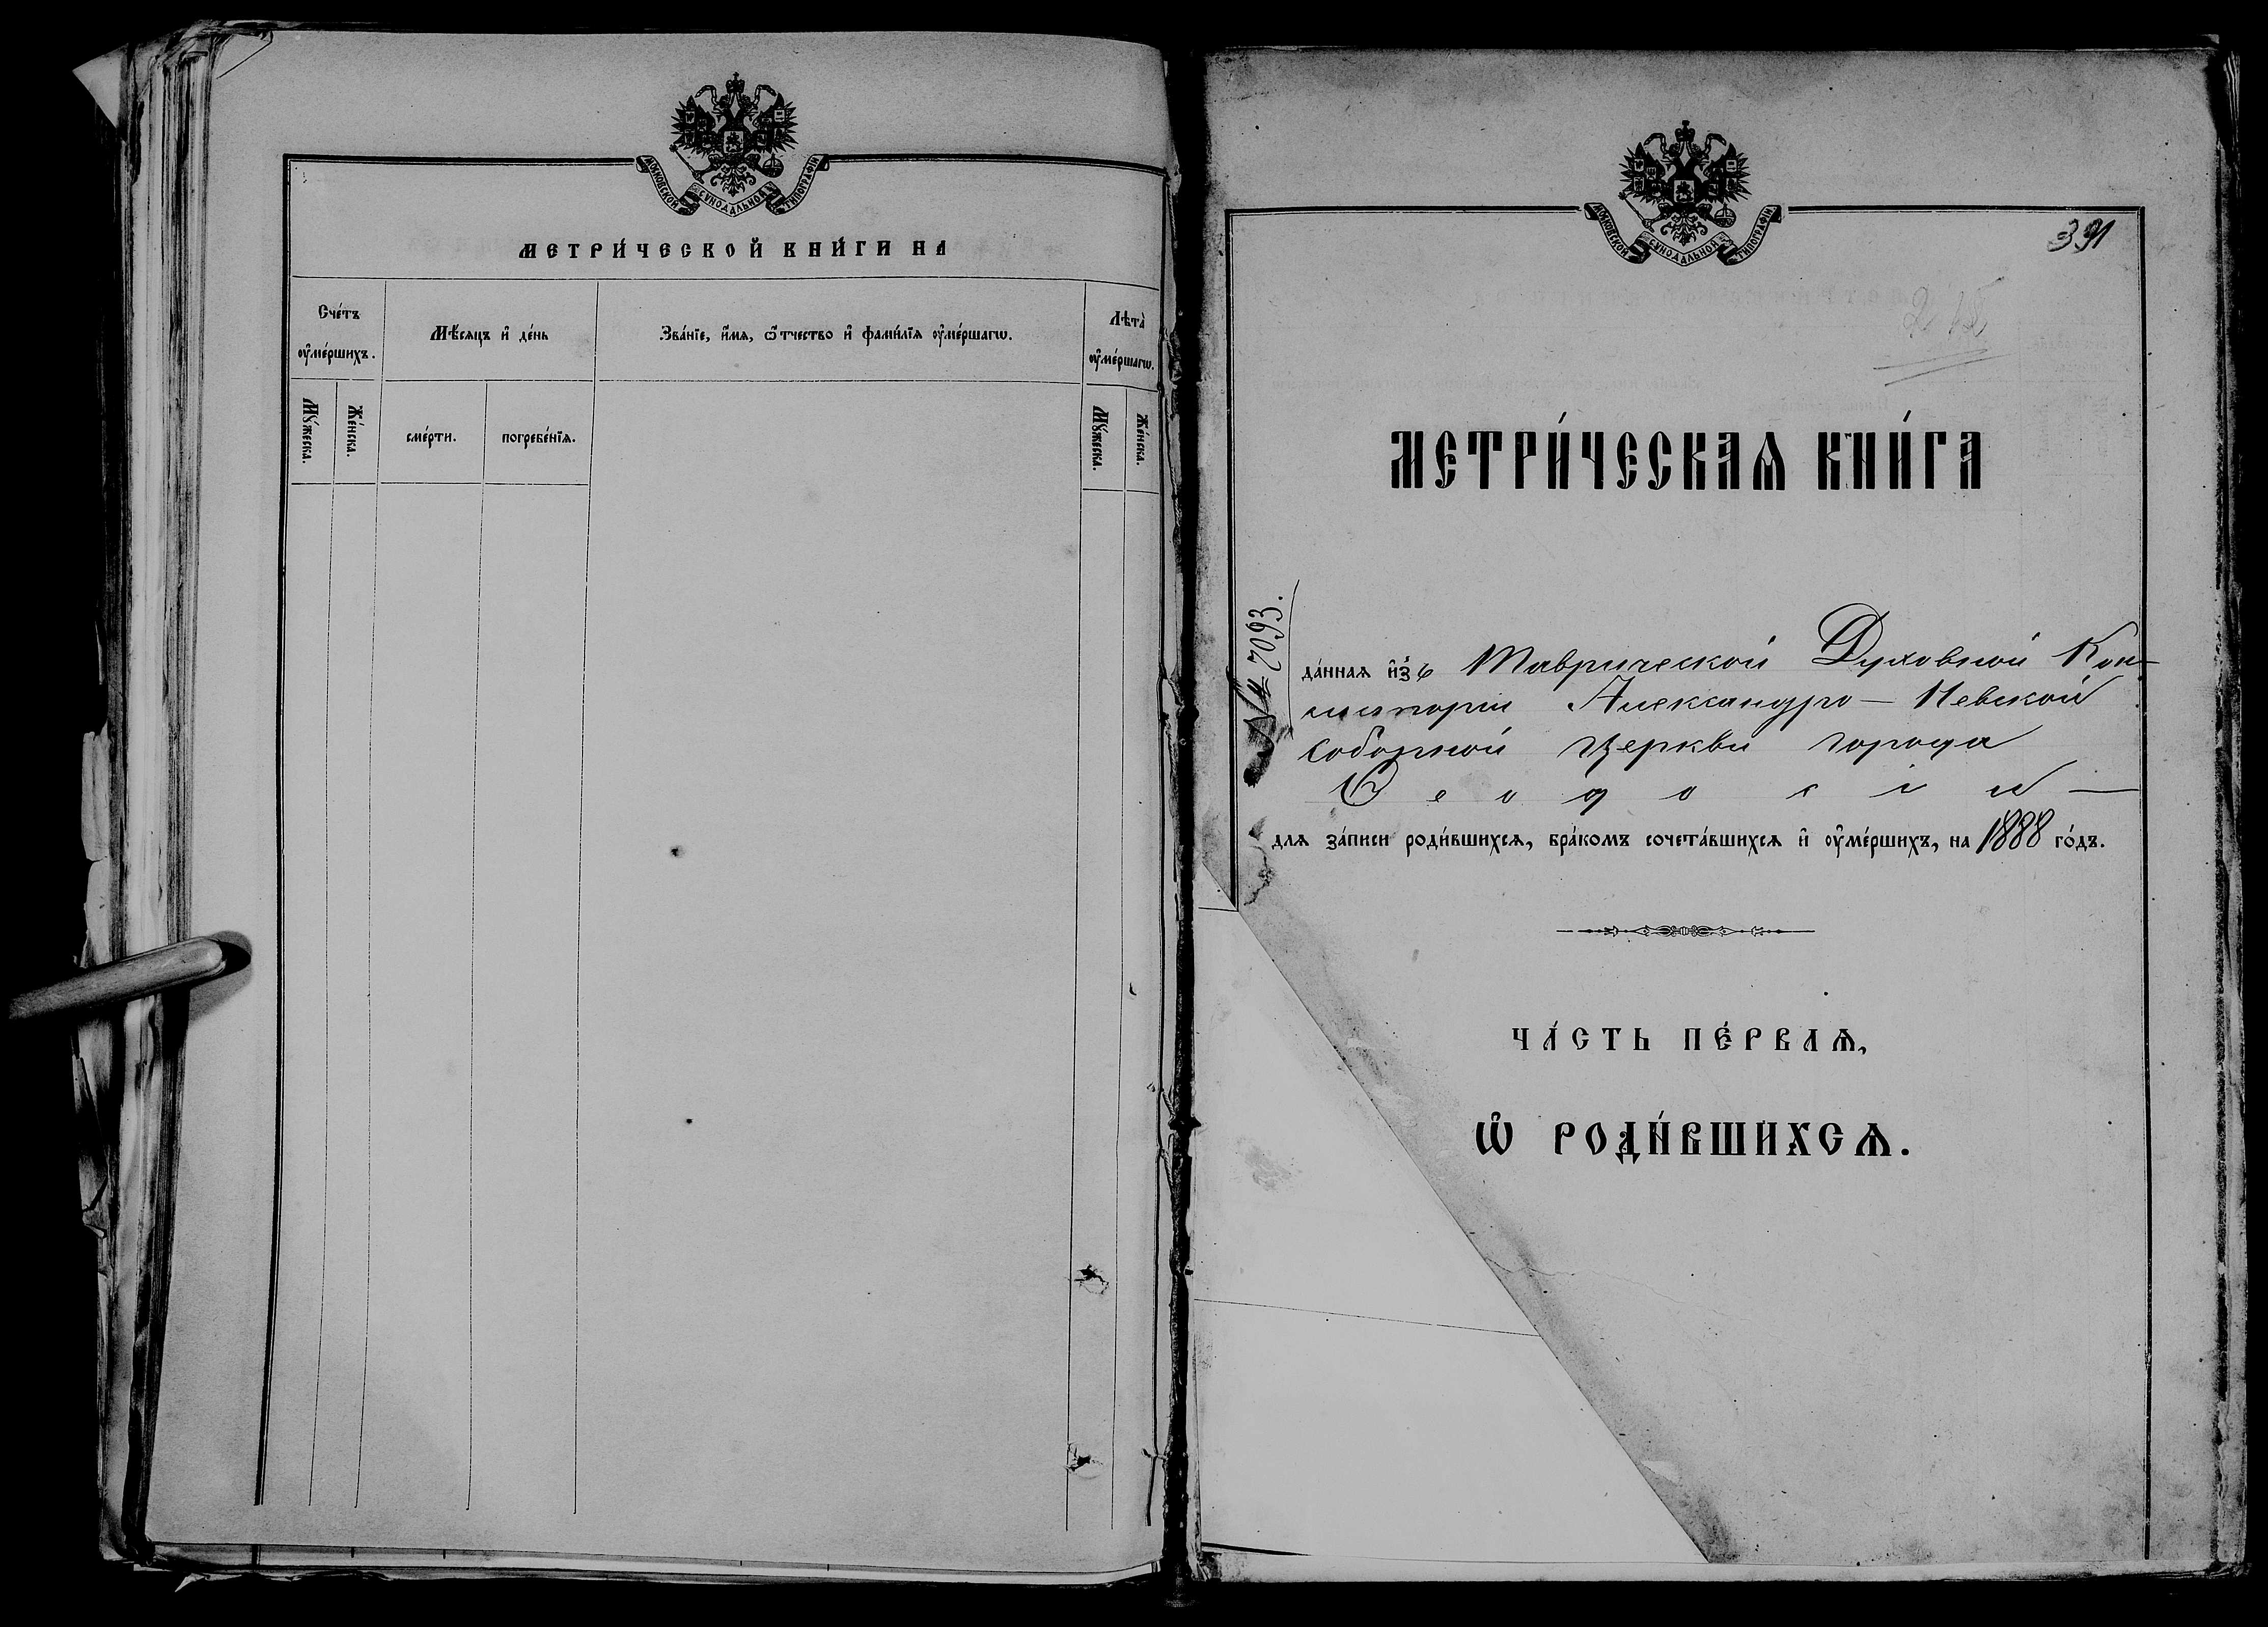 МОСКОВСКОЙ СѴНОДАЛЬНОЙ ТИПОГРАФІИ
МЕТРИ́ЧЕСКОЙ КНИ́ГИ НА
Сче́тъ ᲂу҆ме́ршихъ.
Мѣ́сяцъ и҆ де́нь
Зва́нїе, и҆́мѧ, ѻ҆́тчество и҆ фами́лїѧ ᲂу҆ме́ршагѡ.
Лѣта̀ ᲂу҆ме́ршагѡ.
Мꙋ́жеска.
Же́нска.
сме́рти.
погребе́нїѧ.
Мꙋ́жеска.
Же́нска.
МОСКОВСКОЙ СѴНОДАЛЬНОЙ ТИПОГРАФІИ
391
МЕТРИ́ЧЕСКАѦ КНИ́ГА
№ 7093.
да́ннаѧ и҆зъ Таврической Духовной Кон-
систоріи Александро-Невской
соборной церкви города
Ѳеодосіи —
длѧ за́писи роди́вшихсѧ, бра́комъ сочета́вшихсѧ и҆ ᲂу҆ме́ршихъ, на 1888 го́дъ.
ЧА́СТЬ ПЕ́РВАѦ,
Ѡ҆ РОДИ́ВШИХСѦ.